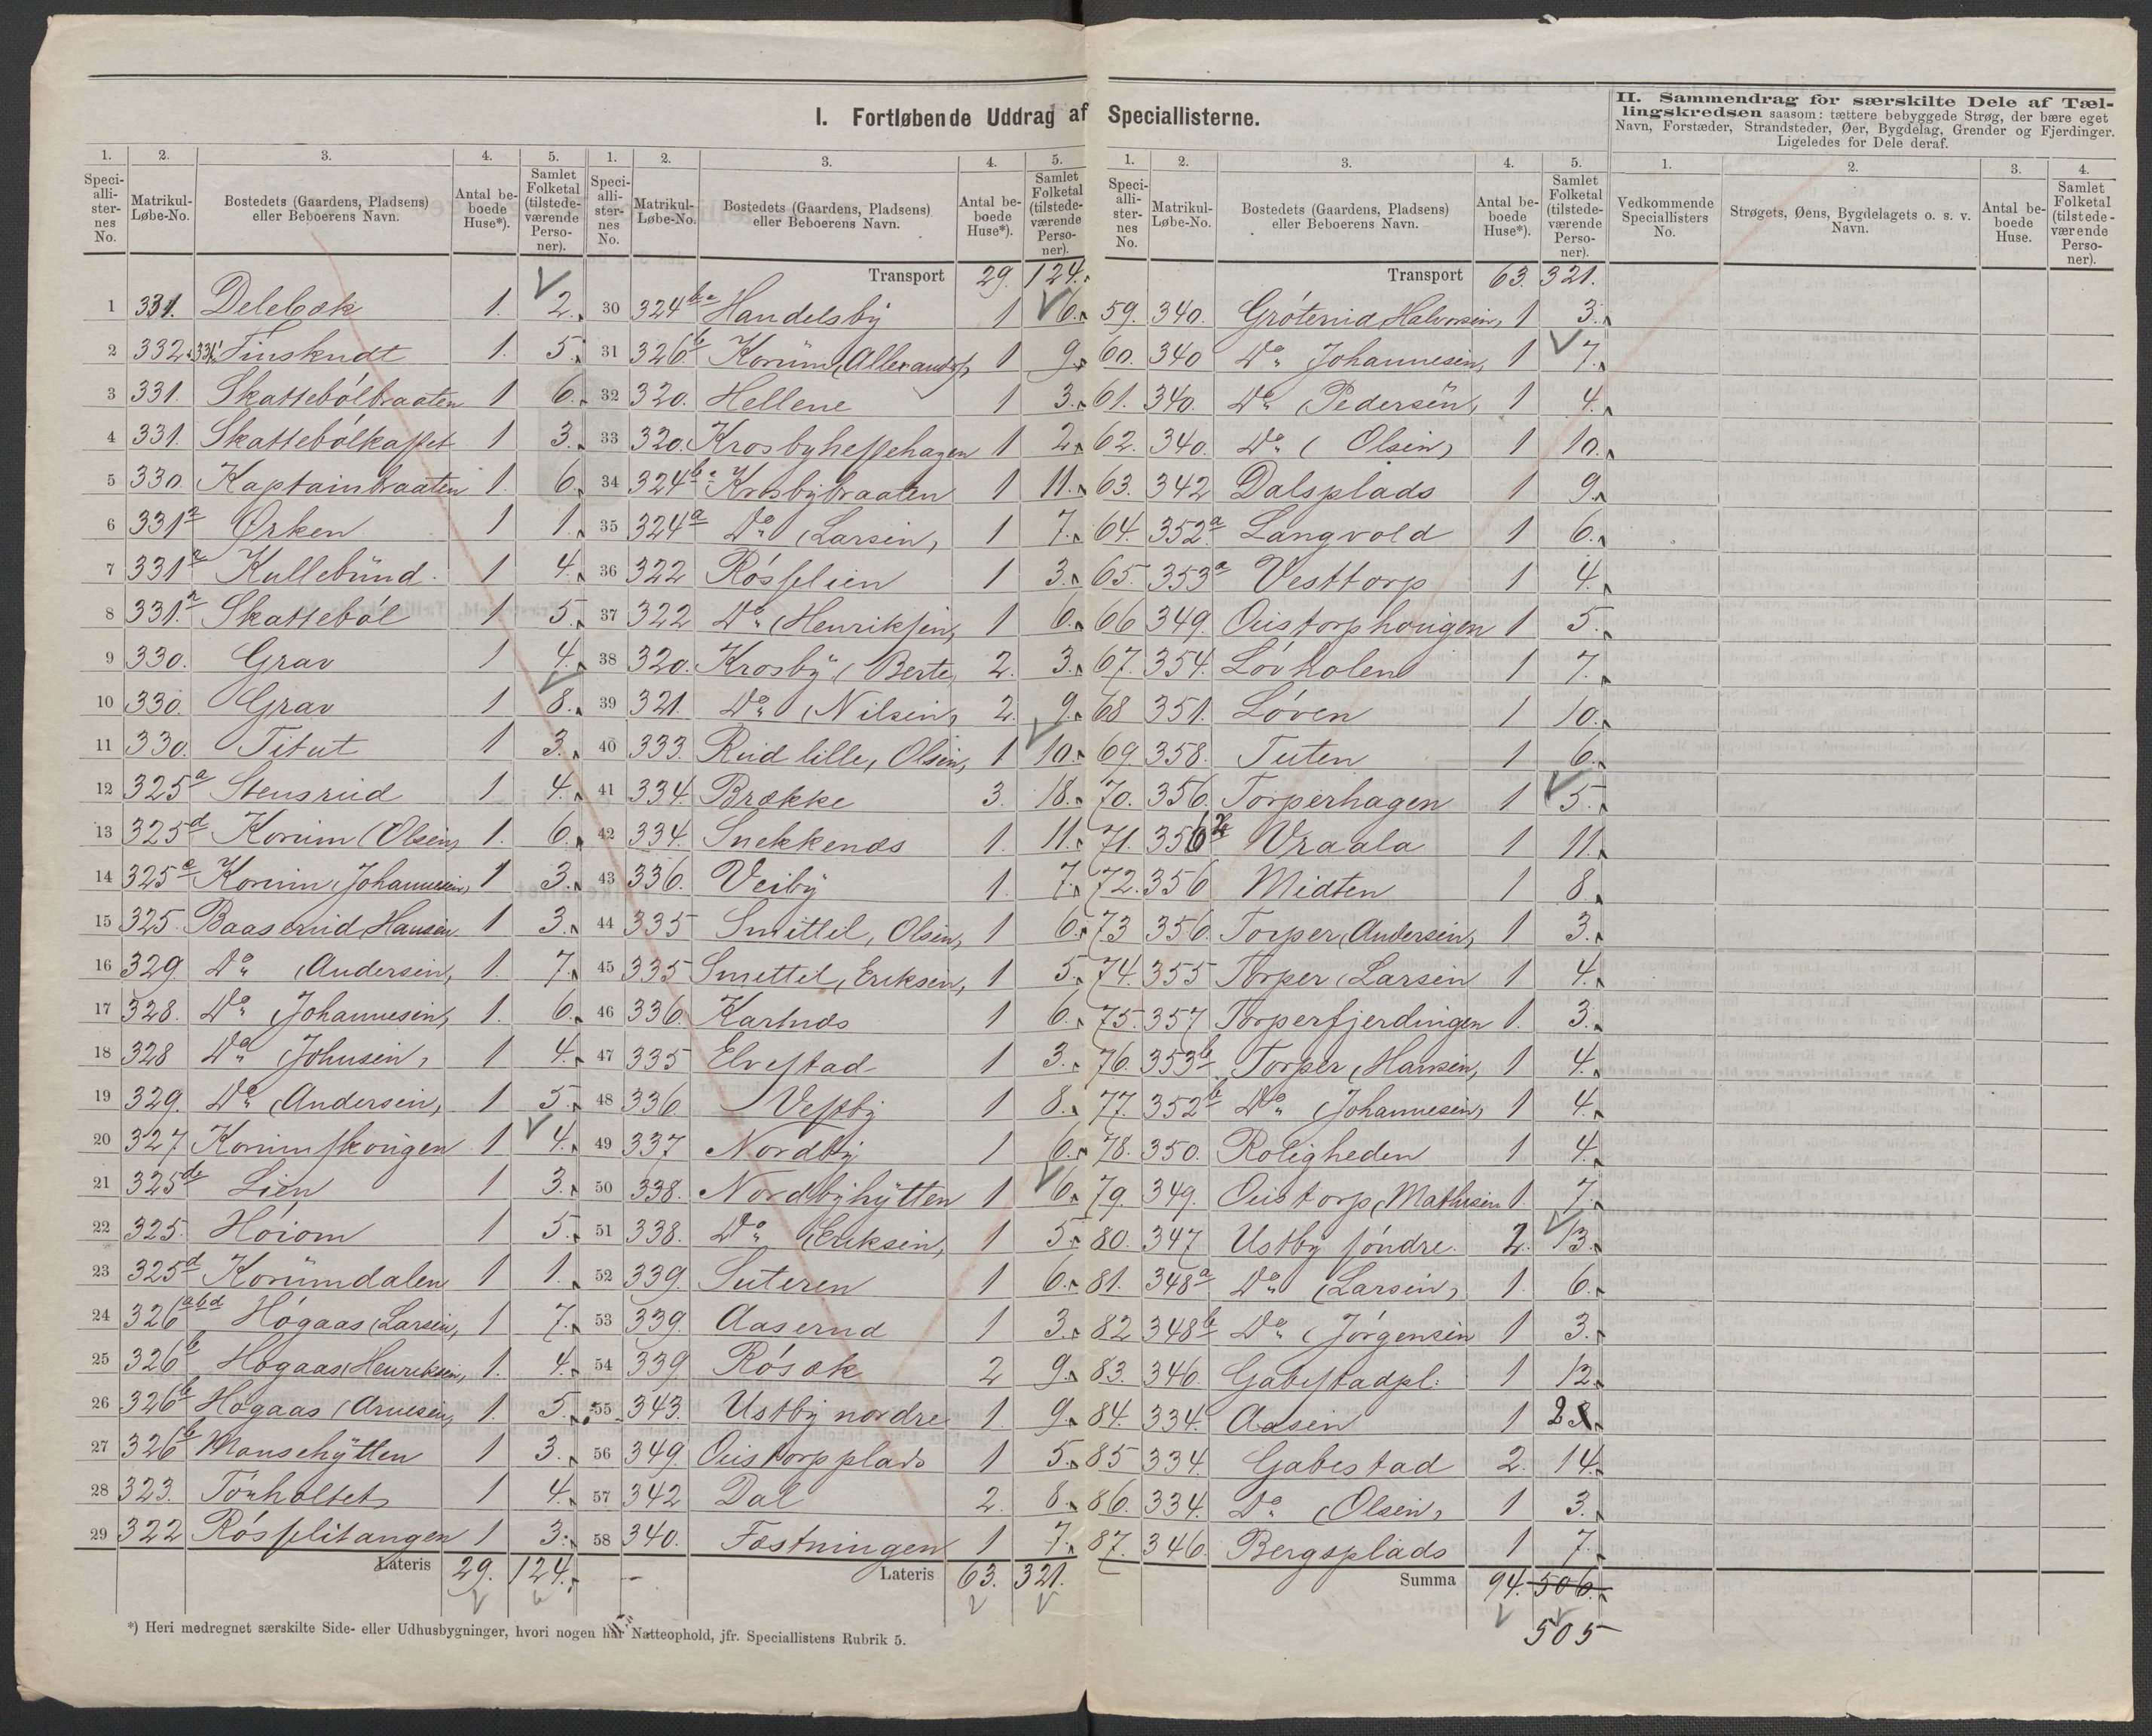 I. Fortløbende Uddrag af Speciallisterne.
II. Sammendrag for særskilte Dele af Tæl-
lingskredsen saasom: tættere bebyggede Strøg, der bære eget
Navn, Forstæder, Strandsteder, Øer, Bygdelag, Grender og Fjerdinger.
Ligeledes for Dele deraf.
1. 2. 3. 4. 5.
Speciallisternes No. Matrikul-Løbe-No. Bostedets (Gaardens, Pladsens) eller Beboerens Navn. Antal beboede Huse*). Samlet Folketal (tilstedeværende Personer).
1 331. Delebæk 1. 2.
2 332 & 331 Finskudt 1. 5.
3 331. Skattebölbraaten 1 6.
4 331. Skattebölkasset 1 3.
5 330. Kaptainbraaten 1. 6.
6 331a Ørken 1 1.
7 331a Kullebünd 1 4.
8 331a Skatteböl 1 5.
9 330. Grav 1 4.
10 330. Grav 1 8.
11 330. Titut 1 3.
12 325a Stensrüd 1 4.
13 325d Korüm (Olsen) 1. 6.
14 325a Korüm, Johannesen, 1 3.
15 325. Baaserud, Hansen 1 3.
16 329. Do (Andersen, 1. 7.
17 328. Do (Johannesen, 1. 6.
18 328 Do (Johnsen, 1 4.
19 329. Do (Andersen, 1 5.
20 327 Korumskougen 1 4.
21 325de Lien 1 3.
22 325. Höiom 1 5.
23 325d Korümdalen 1 1.
24 326abd Högaas (Larsen, 1 7.
25 326b Högaas (Henriksen, 1. 4.
26 326b Högaas (Arnesen, 1. 5.
27 326b Monsehÿtten 1 3.
28 323. Törholtet 1 4.
29 322 Rösslitangen 1 3.
Lateris 29. 124.
1. 2. 3. 4. 5.
Speciallisternes No. Matrikul-Løbe-No. Bostedets (Gaardens, Pladsens) eller Beboerens Navn. Antal beboede Huse*). Samlet Folketal (tilstedeværende Personer).
Transport 29. 124.
30 324b Handelsbÿ 1 6.
31 326b Korüm (Allexanders, 1 9.
32 320. Hellene 1 3.
33 320. Krosbyhessehagen 1 2.
34 324b Krosbÿbraaten 1 11.
35 324a Do (Larsen, 1 7.
36 322 Rösslien 1 3.
37 322 Do (Henriksen, 1 6.
38 320. Krosbÿ (Berte, 2. 3.
39 321. Do (Nilsen, 2. 9.
40 333. Rüd lille, Olsen, 1 10.
41 334. Brække 3. 18.
42 334. Snekkenæs 1. 11.
43 336. Veibÿ 1. 7.
44 335 Smittil, Olsen, 1 6.
45 335 Smittil, Eriksen, 1 5.
46 336. Kartnæs 1 6.
47 335 Elvestad 1 3.
48 336. Vestbÿ 1 8.
49 337 Nordbÿ 1 6.
50 338. Nordbÿhÿtten 1 6.
51 338. Do (Eriksen, 1 5.
52 339. Suteren 1 6.
53 339. Aaserud 1 3.
54 339 Rösæk 2 9.
55 343. Ustbÿ nordre 1. 9.
56 349. Oustorpplads 1 5.
57 342 Dal 2. 8.
58 340. Fæstningen 1 7.
Lateris 63. 321.
1. 2. 3. 4. 5.
Speciallisternes No. Matrikul-Løbe-No. Bostedets (Gaardens, Pladsens) eller Beboerens Navn. Antal beboede Huse*). Samlet Folketal (tilstedeværende Personer).
Transport 63. 321.
59. 340. Gröterud, Halvorsen, 1 3.
60. 340 Do Johannesen, 1 7.
61. 340. Do (Pedersen, 1 4.
62. 340. Do (Olsen) 1 10.
63. 342 Dalsplads 1 9.
64. 352a Langvold 1 6.
65. 353a Vesttorp 1 4.
66 349. Oustorphougen 1 5.
67. 354. Lövholen 1 7.
68 351. Löven 1 10.
69 358. Tuten 1 6.
70. 356. Torperhagen 1 5.
71. 356 Vraala 1 11.
72. 356 Midten 1 8.
73 356. Torper, Andersen, 1 3.
74. 355 Torper, Larsen 1 4.
75. 357 Torperfjerdingen 1. 3.
76. 353b Torper, Hansen, 1 4.
77. 352b Do (Johannesen, 1 4.
78. 350. Roligheden 1 4.
79. 349. Oustorp, Mathisen 1 7.
80. 347 Ustby söndre. 2. 13.
81. 348a Do (Larsen, 1. 6.
82 348b Do (Jörgensen 1 3.
83. 346. Gabestadpl. 1 12.
84. 334. Aasen 1 2
85 334. Gabestad 2. 14.
86. 334. Do (Olsen, 1 3.
87. 346. Bergsplads 1 7.
Summa 94. 506.
505
1. 2. 3. 4.
Vedkommende Speciallisters No. Strøgets, Øens, Bygdelagets o. s. v. Navn. Antal beboede Huse. Samlet Folketal (tilstedeværende Personer).
*) Heri medregnet særskilte Side- eller Udhusbygninger, hvori nogen har Natteophold, jfr. Speciallistens Rubrik 5.